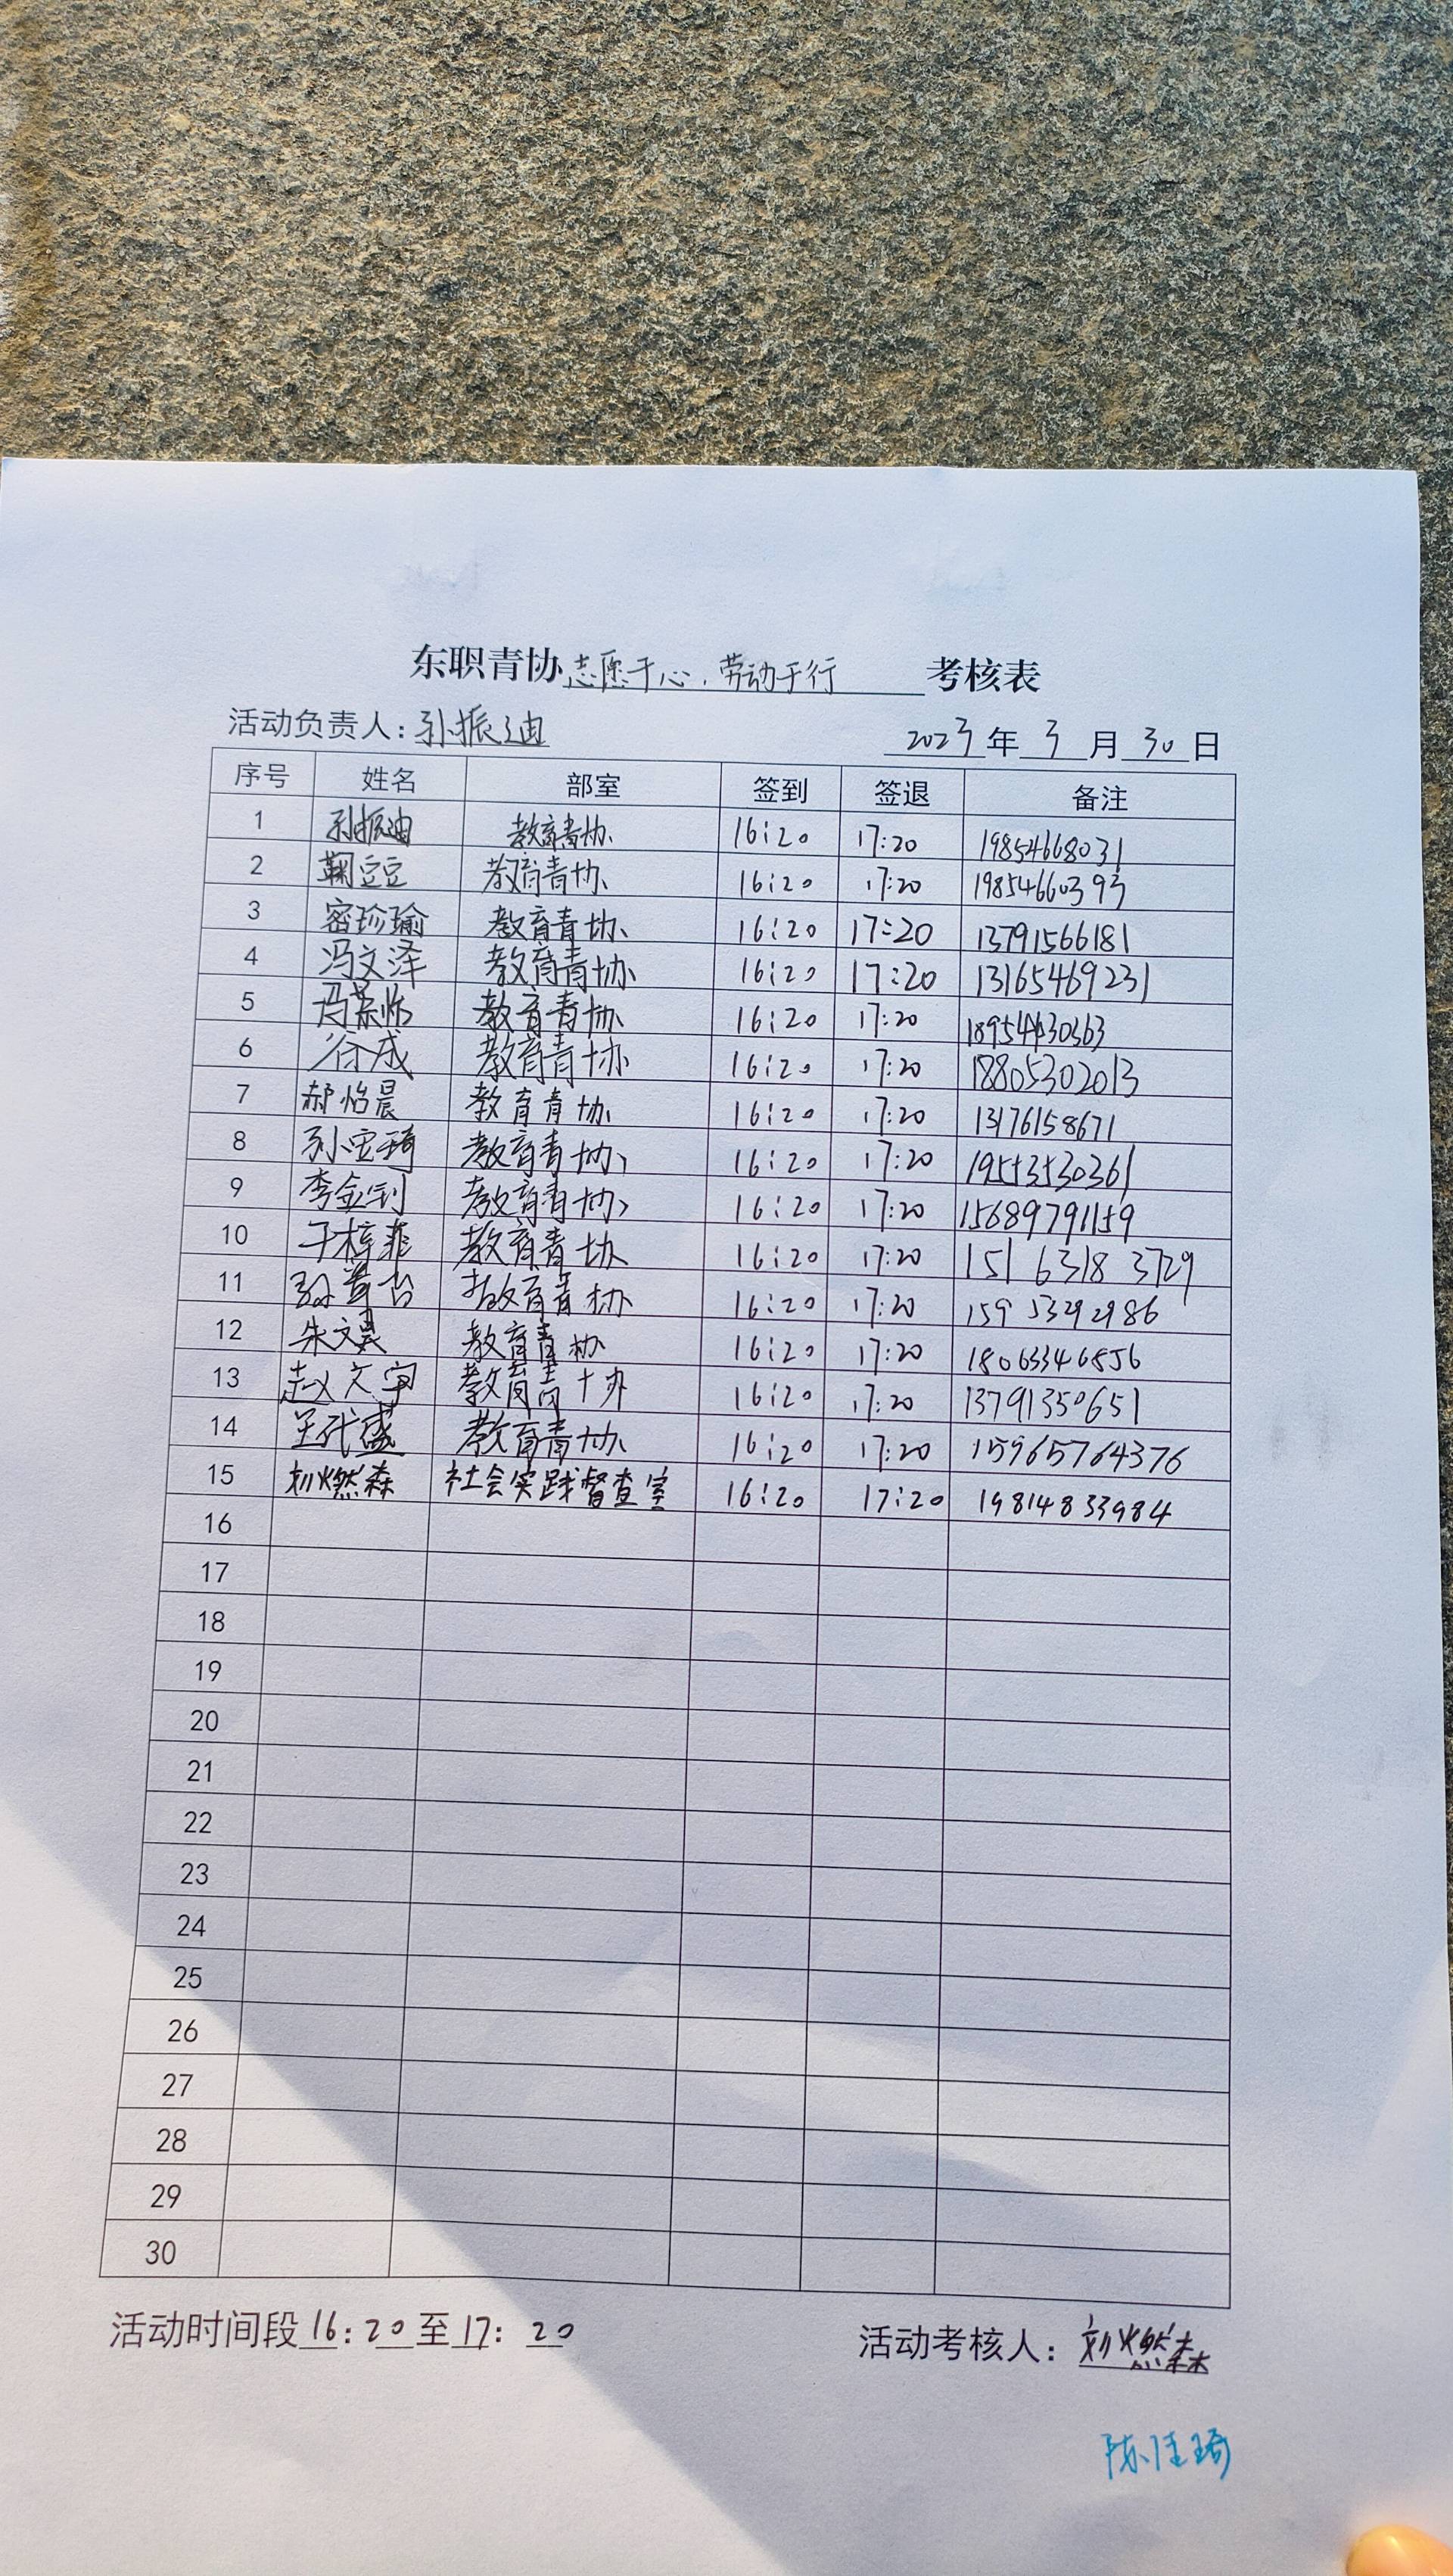 东职青协志愿于心，劳动于行 考核表
活动负责人：孙振迪 2023年3月30日
序号 姓名 部室 签到 签退 备注
1 孙振迪 教育青协 16:20 17:20 19854668031
2 鞠豆豆 教育青协 16:20 17:20 19854660393
3 密珍瑜 教育青协 16:20 17:20 13791566181
4 冯文泽 教育青协 16:20 17:20 13165469231
5 教育青协 16:20 17:20
6 徐成 教育青协 16:20 17:20 18805302013
7 郝怡晨 教育青协 16:20 17:20 13176158671
8 孙宝琦 教育青协 16:20 17:20 19553530361
9 李金钊 教育青协 16:20 17:20 15689791159
10 于梓菲 教育青协 16:20 17:20 151 6318 3729
11 教育青协 16:20 17:20 159 53292986
12 朱文昊 教育青协 16:20 17:20 18063346856
13 赵文宇 教育青协 16:20 17:20 13791350651
14 教育青协 16:20 17:20 15965764376
15 刘燃森 社会实践督查室 16:20 17:20 19814833984
16
17
18
19
20
21
22
23
24
25
26
27
28
29
30
活动时间段16:20至17:20 活动考核人：刘燃森
陈佳琦